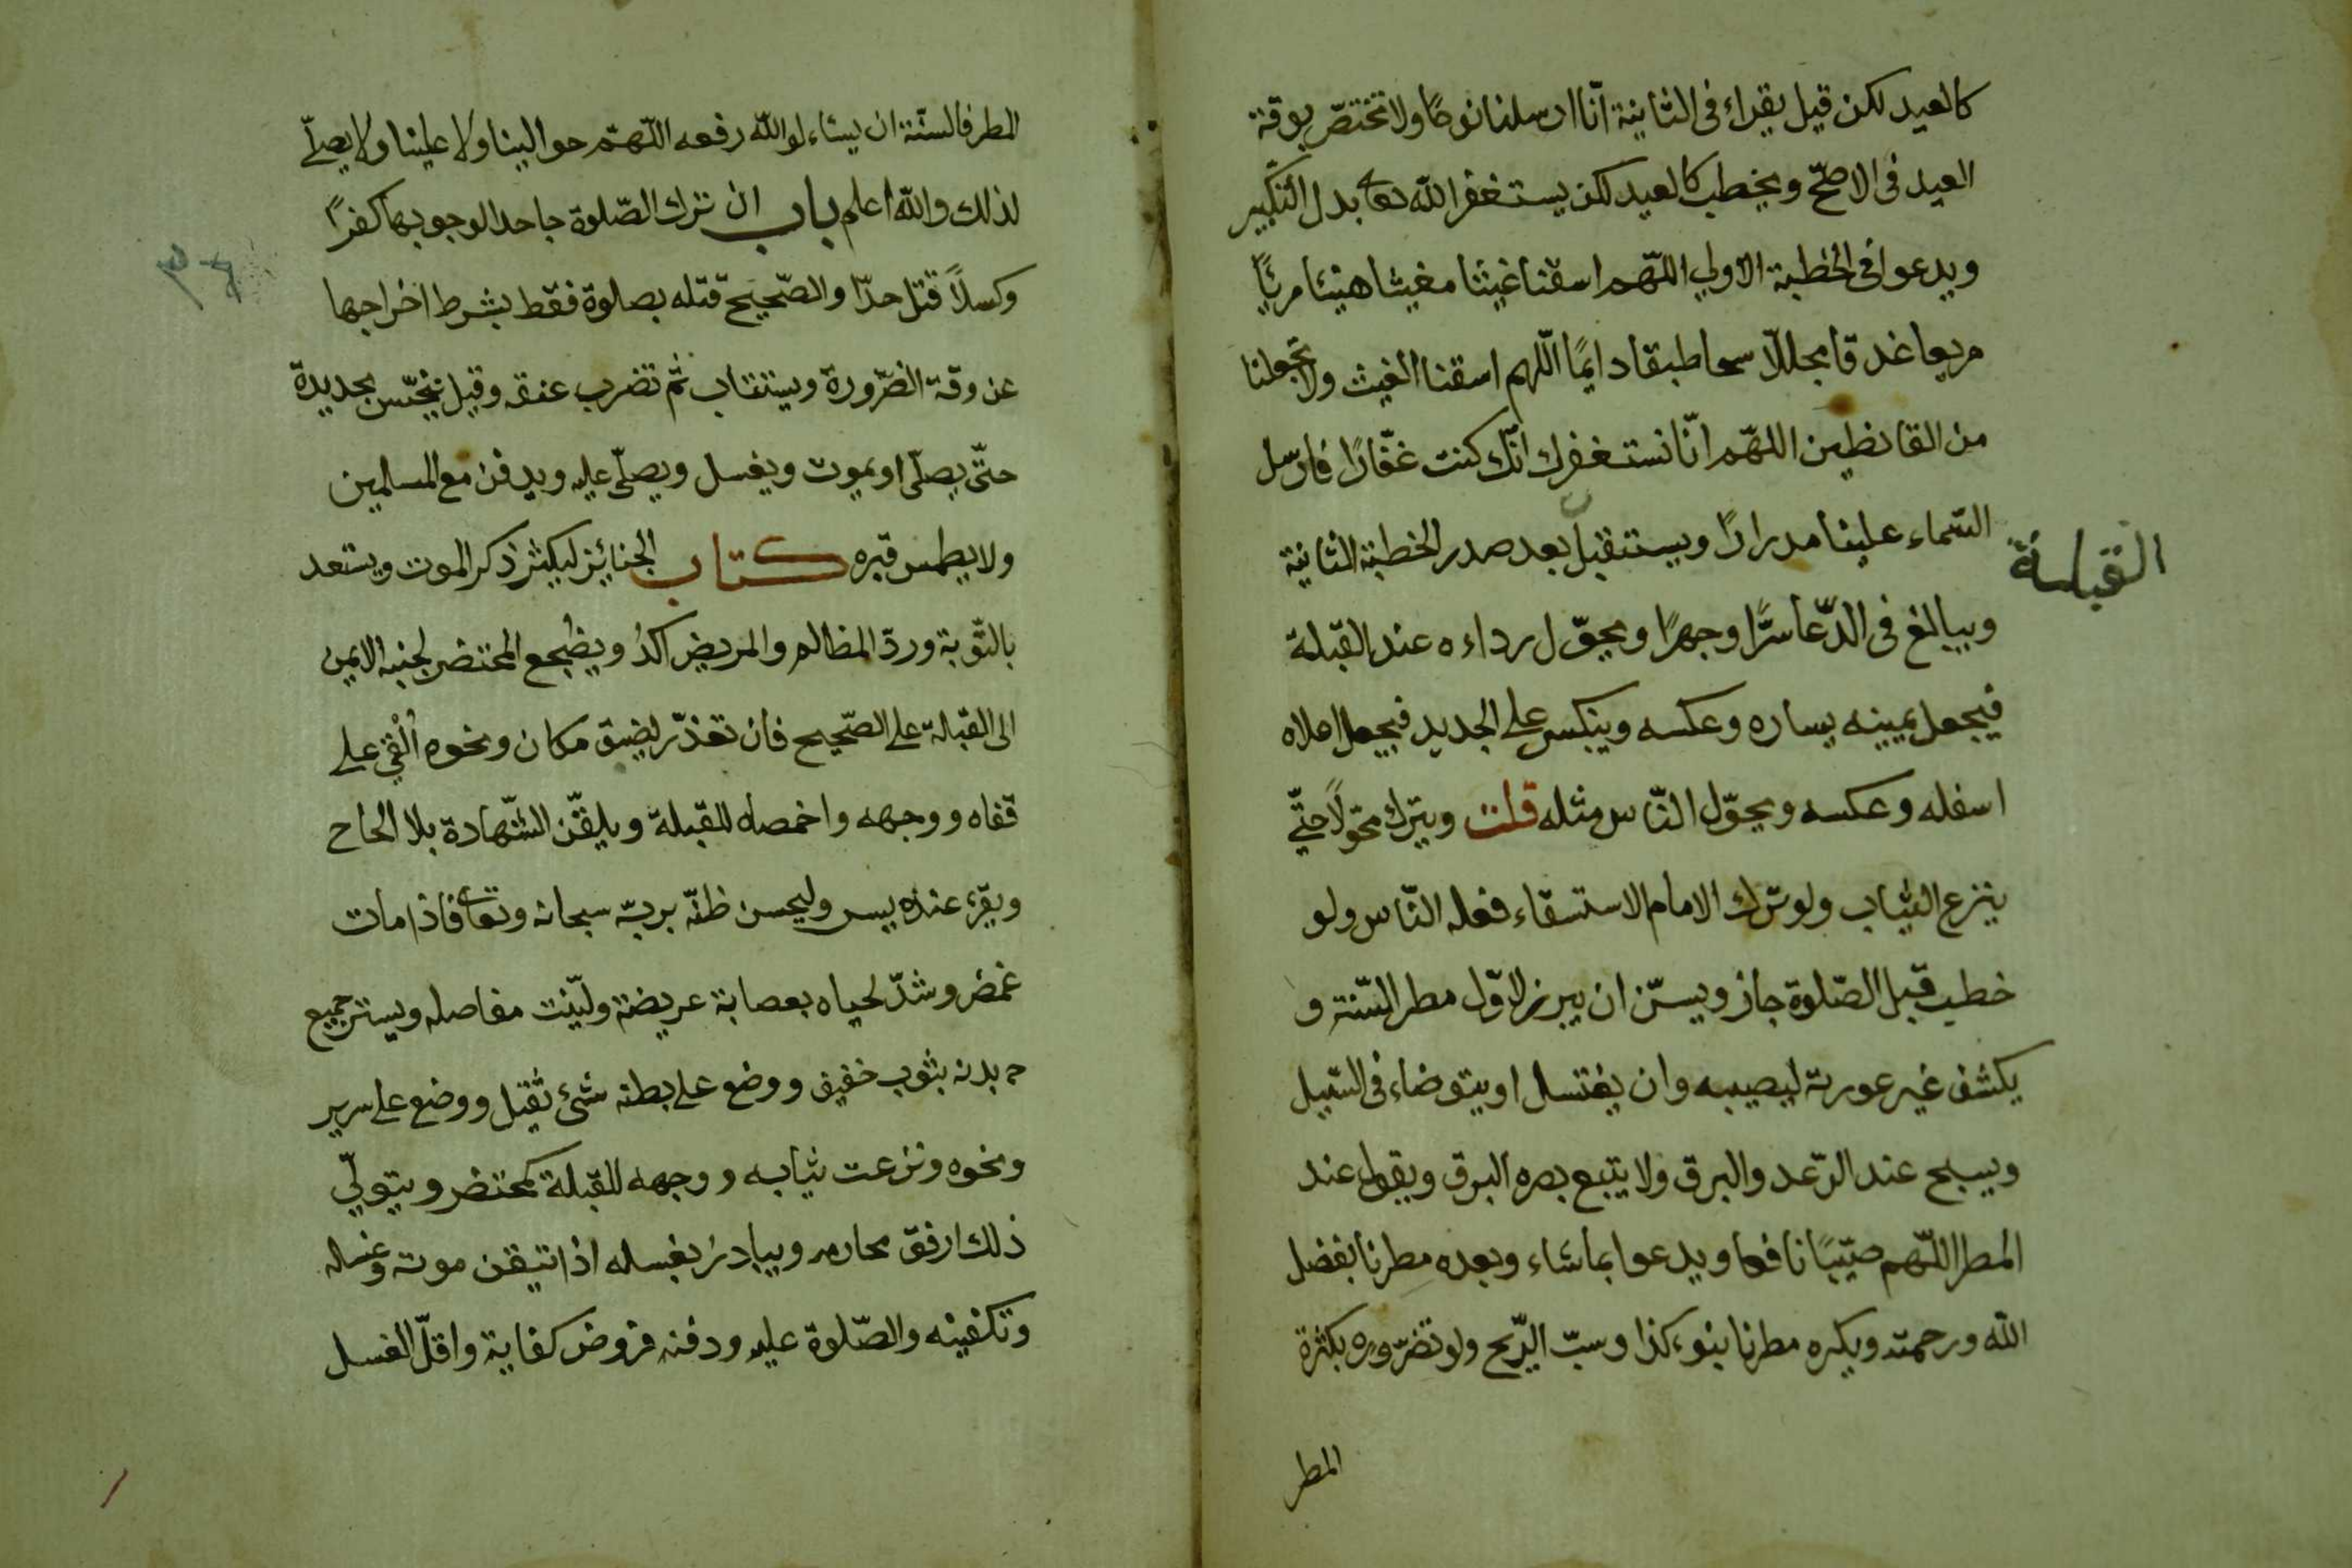 كالعيد لكن قيل يقراء فى الثانية انّا ارسلنا نوحًا ولا تختصّ بوقة
العيد فى الاصحّ ويخطب كالعيد لكن يستغفر الله تعا بدل التكبير
ويدعوا فى الخطبة الاولي اللّهم اسقنا غيثنا مغيثا هنيئا مريًا
مريعا غدقا مجللّا سحا طبقا دايمًا اللّهم اسقنا الغيث ولا تجعلنا
من القانطين اللهّم انّا نستغفرك انّك كنت غفّارًا فارسل
السّماء علينا مدرارًا ويستقبل بعد صدر الخطبة الثانية
القبلة
ويبالغ فى الدّعا سرًّا وجهرًا ويحوّل رداءه عند القبلة
فيجعل يمينه يساره وعكسه وينكس على الجديد فيجعل اعلاه
اسفله وعكسه ويحوّل النّاس مثله قلت ويترك محوّلًا حتّي
ينزع الثياب ولو ترك الامام الاستسقاء فعله النّاس ولو
خطب قبل الصّلوة جاز ويسنّ ان يبرز لاوّل مطر السّنة و
يكشف غير عورته ليصيبه وان يغتسل او يتوضاء فى السّيل
ويسبح عند الرّعد والبرق ولا يتبع بصره البرق ويقول عند
المطر اللّهم صيّبًا نافعا ويدعوا بما شاء وبعده مطرنا بفضل
الله ورحمته ويكره مطرنا بنوء كذا وسبّ الرّيح ولو تضرّوره بكثرة
المطر
المطر فالسنّة ان يسئا لو الله رفعه اللّهمّ حوالينا ولا علينا ولا يصلّي
لذلك والله اعلم باب ان ترك الصّلوة جاحدا لوجوبها كفرًا
وكسلًا قتل حدّا والصّحيح قتله بصلوة فقط بشرط اخراجها
عن وقة الضّرورة ويستتاب ثمّ تضرب عنقه وقيل ينخّس بحديدة
حتّى يصلّى او يموت ويغسل ويصلّى عليه ويدفن مع المسلمين
ولا يطمس قبره كتاب الجنائز ليكثر ذكر الموت ويستعد
بالتّوبة وردّ المظالم والمريض اكدُ ويضجع المحتضر لجنبه الايمن
الى القبلة على الصّحيح فان تعذّر لضيق مكان ونحوه اُلْقِيَ على
قفاه ووجهه واخمصاه للقبلة ويلقّن الشّهادة بلا الحاح
ويقرء عنده يس وليحسن ظنّه بربّه سبحانه وتعا فاذا مات
غمض وشدّ لحياه بعصابة عريضة وليّنت مفاصله ويستر جميع
بدنه بثوب خفيف ووضع على بطنه شئ ثقيل ووضع على سرير
ونحوه ونزعت ثيابه ووجهه للقبلة كمحتضر ويتولّي
ذلك ارفق محارمه ويبادر بغسله اذا تيقن موته وغسله
وتكفينه والصّلوة عليه ودفنه فروض كفاية واقلّ الغسل